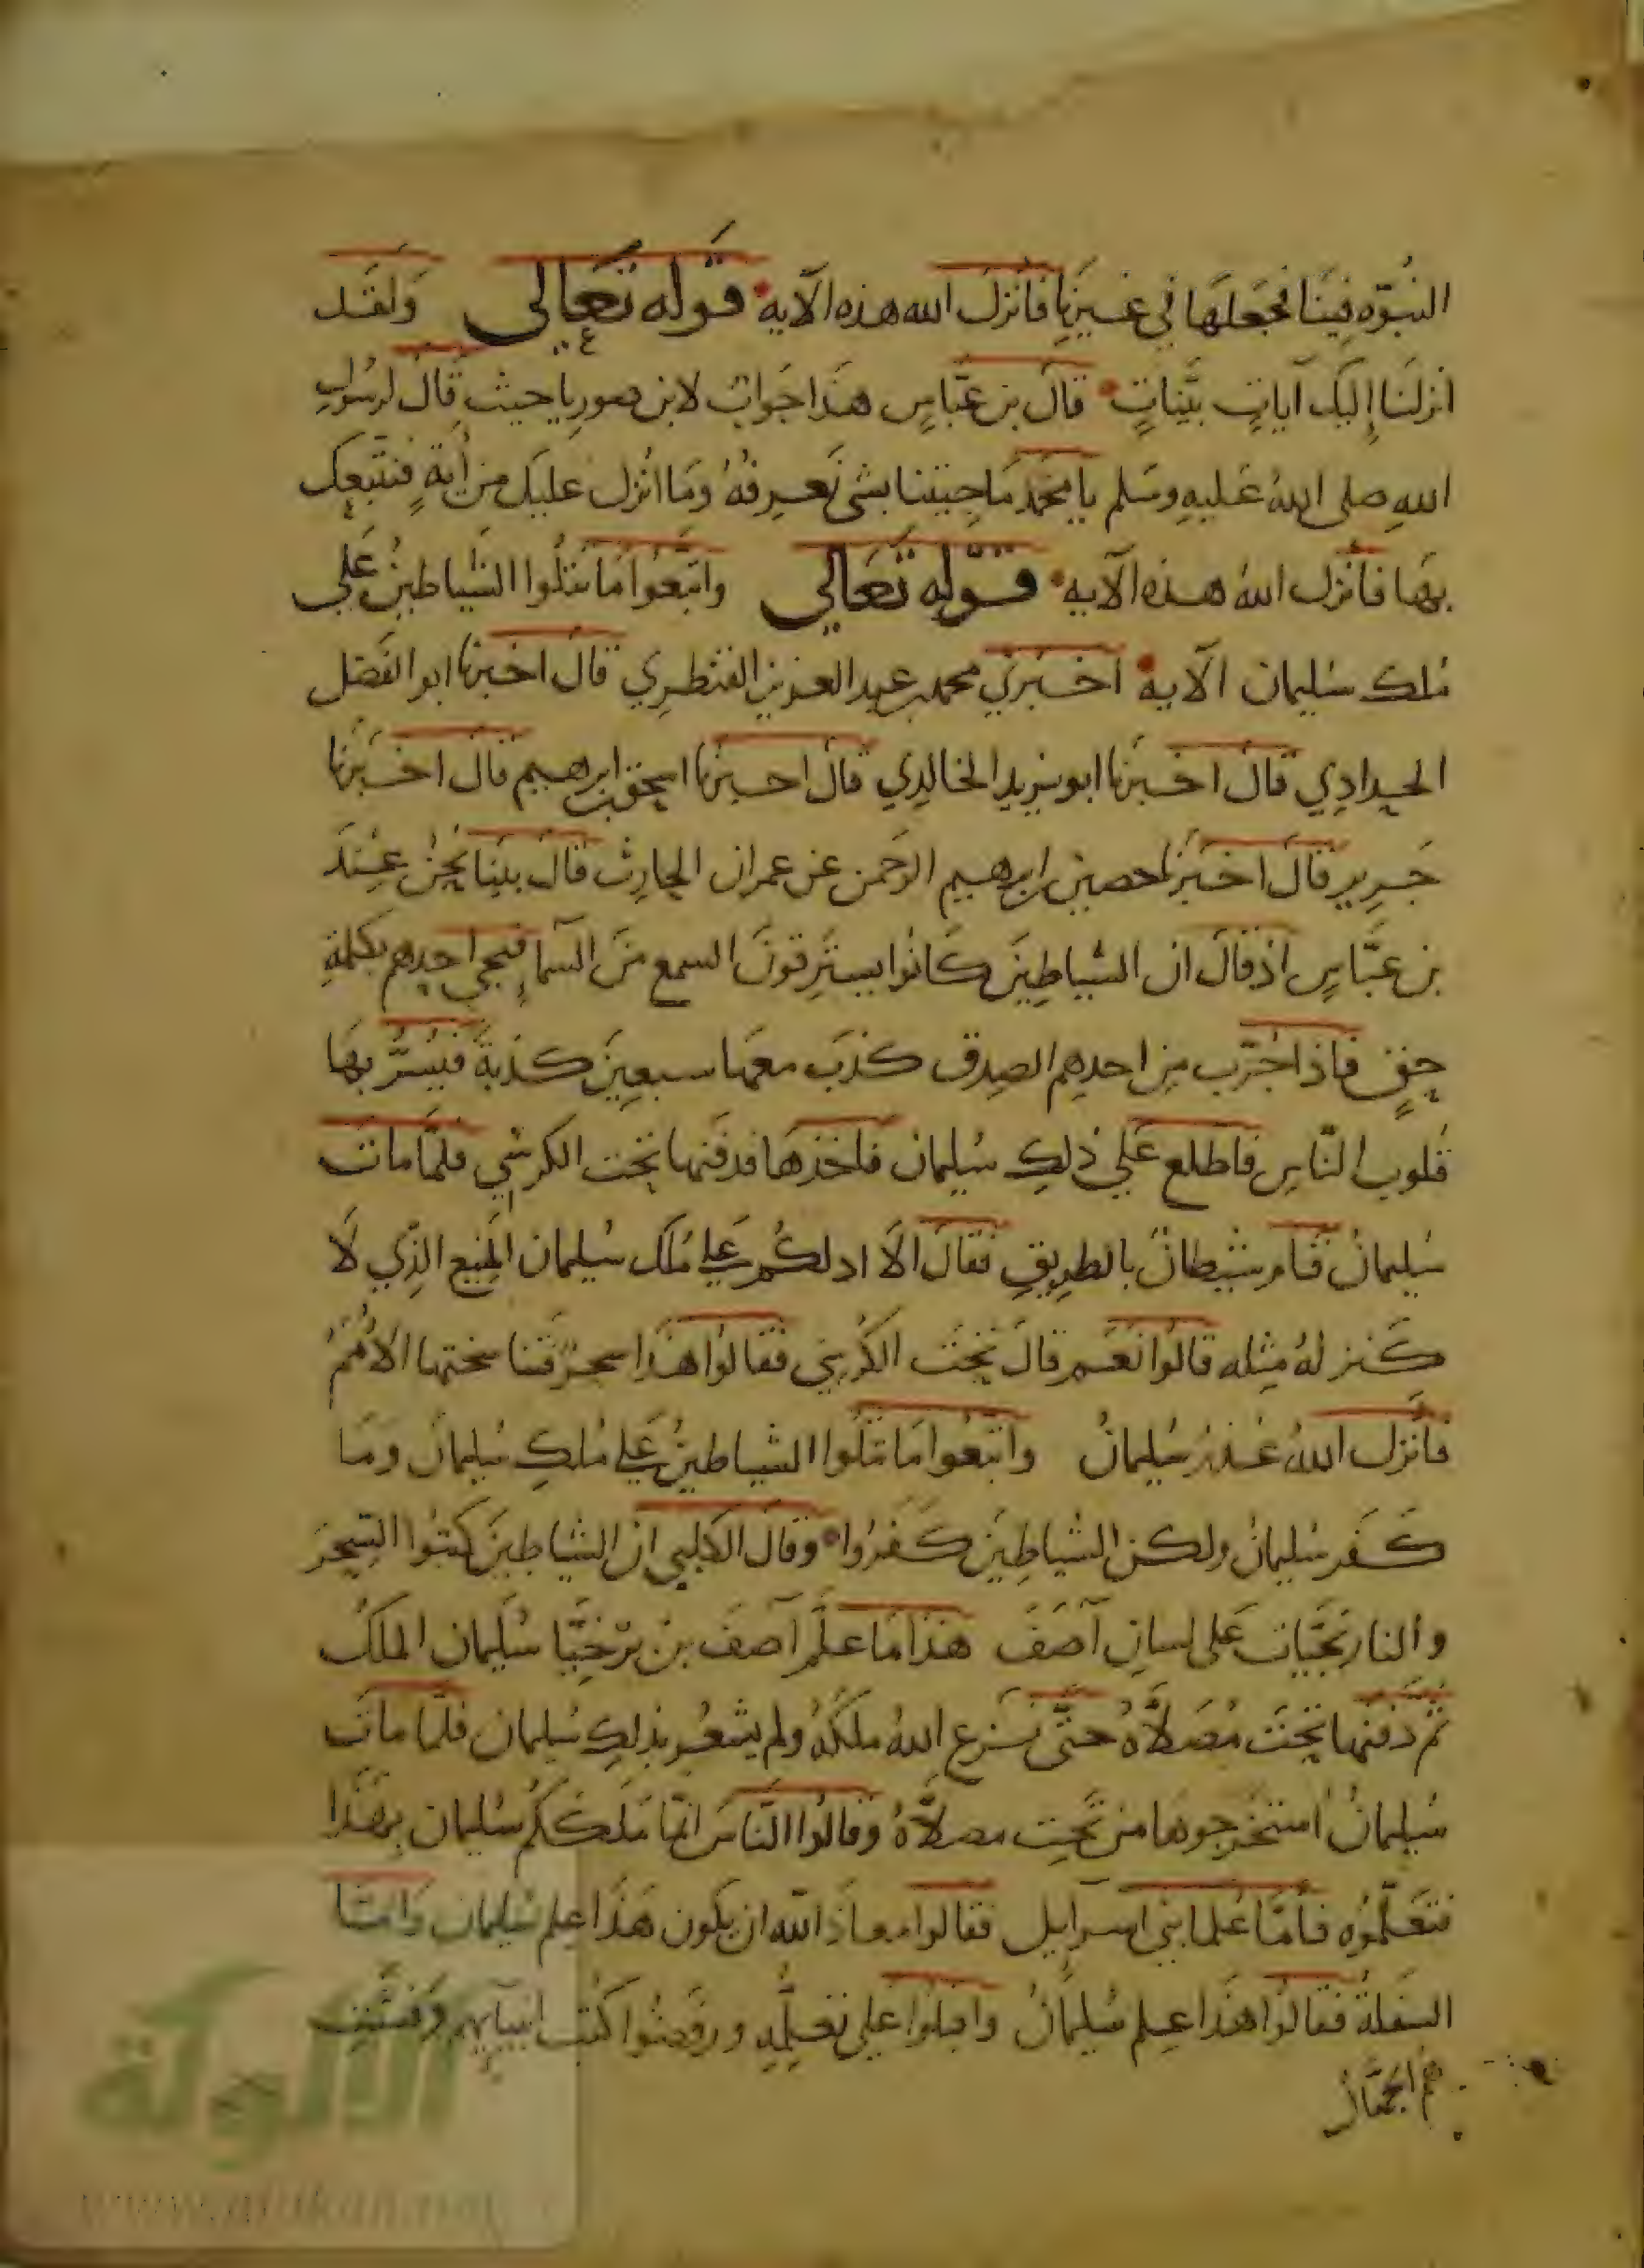 النبوّه فِينَا فجَعَلهَا في غيرنا فانزل الله هذه الآية قوله تعالى وَلقَد
انزلنَا إليك آياتٍ بيّناتٍ قال بن عبّاسٍ هذا جَوابٌ لابن صوريا حيث قال لرسُولِ
اللهِ صلى اللهُ عَليهِ وسَلم يا محمّد مَا جيتنا بشى نَعرفهُ وَمَا انزل عليك من أيةٍ فنتبعك
بهَا فأنزل اللهُ هذه الآيه قوله تعَالي واتّبَعُوا مَا تتلُوا الشياطينُ عَلي
مُلك سُليمان الآية اخبرني محمد بن عبد العزيز القنطري قال اخبرنا ابو الفضل
الحدادِي قال اخبرنا ابو يزيد الخالدِي قال اخبرنا اسحق بن ابرهيم قال اخبَرنا
جَرير قال اخبَرنا حصين بن ابرهيم الرَحمن عن عمران الحارِث قال بينَا نحنُ عِندَ
بن عبّاسٍ اذ قالَ ان الشياطِينَ كانُوا يسترقونَ السمع مِنَ السّماءِ فيجي احدهم بكلمةِ
حقٍ فاذا جُرّب مِن احدهِم الصِدق كذبَ معهَا سبعِينَ كذبَة فيُسرُّ بهَا
قلوب النّاسِ فاطلع عَلي ذلِك سُليمان فاخذهَا فدفنها تحت الكرسي فلمّا ماتَ
سُليمانُ قام شيطانٌ بالطريقِ فقال الَا ادلكُم عَلي مُلك سُليمان المنيع الذِي لَا
كَنز لهُ مِثله قالوُا نَعَم قالَ تَحتَ الكُرسِي فقَالوُا هَذا سحرٌ فتناسختها الأُمَمُ
فأنزل اللهُ عُذر سُليمانُ واتّبعُوا مَا تتلُوا الشياطينُ عَلي مُلكِ سُليمانَ ومَا
كَفَر سُليمانُ ولكن الشياطِينَ كفَرُوا وقال الكلبي ان الشياطينَ كتبُوا السِحرَ
والنارنجيّات عَلى لسانِ آصَفَ هَذا مَا علّم آصفَ بن برْخيّا سُليمان الملكُ
ثم دَفنها تحتَ مُصَلاَّهُ حتّى نزع اللهُ ملكهُ ولم يشعُر بذلِك سُليمان فلمّا ماتَ
سُليمانُ استخرجوها من تحتِ مصلاّهُ وقالوُا الناسَ انما ملككم سُليمان بهَذا
فتعَلّموُه فأمّا عُلما بني اسرايل فقالوا معاذَ الله ان يكون هَذا عِلم سُليمان وَامّا
السفلةُ فقالوُا هَذا عِلم سُليمانُ واقبلوُا عَلي تعَلّمهِ ورفضُوا كتب انبيايهم وَفشَت